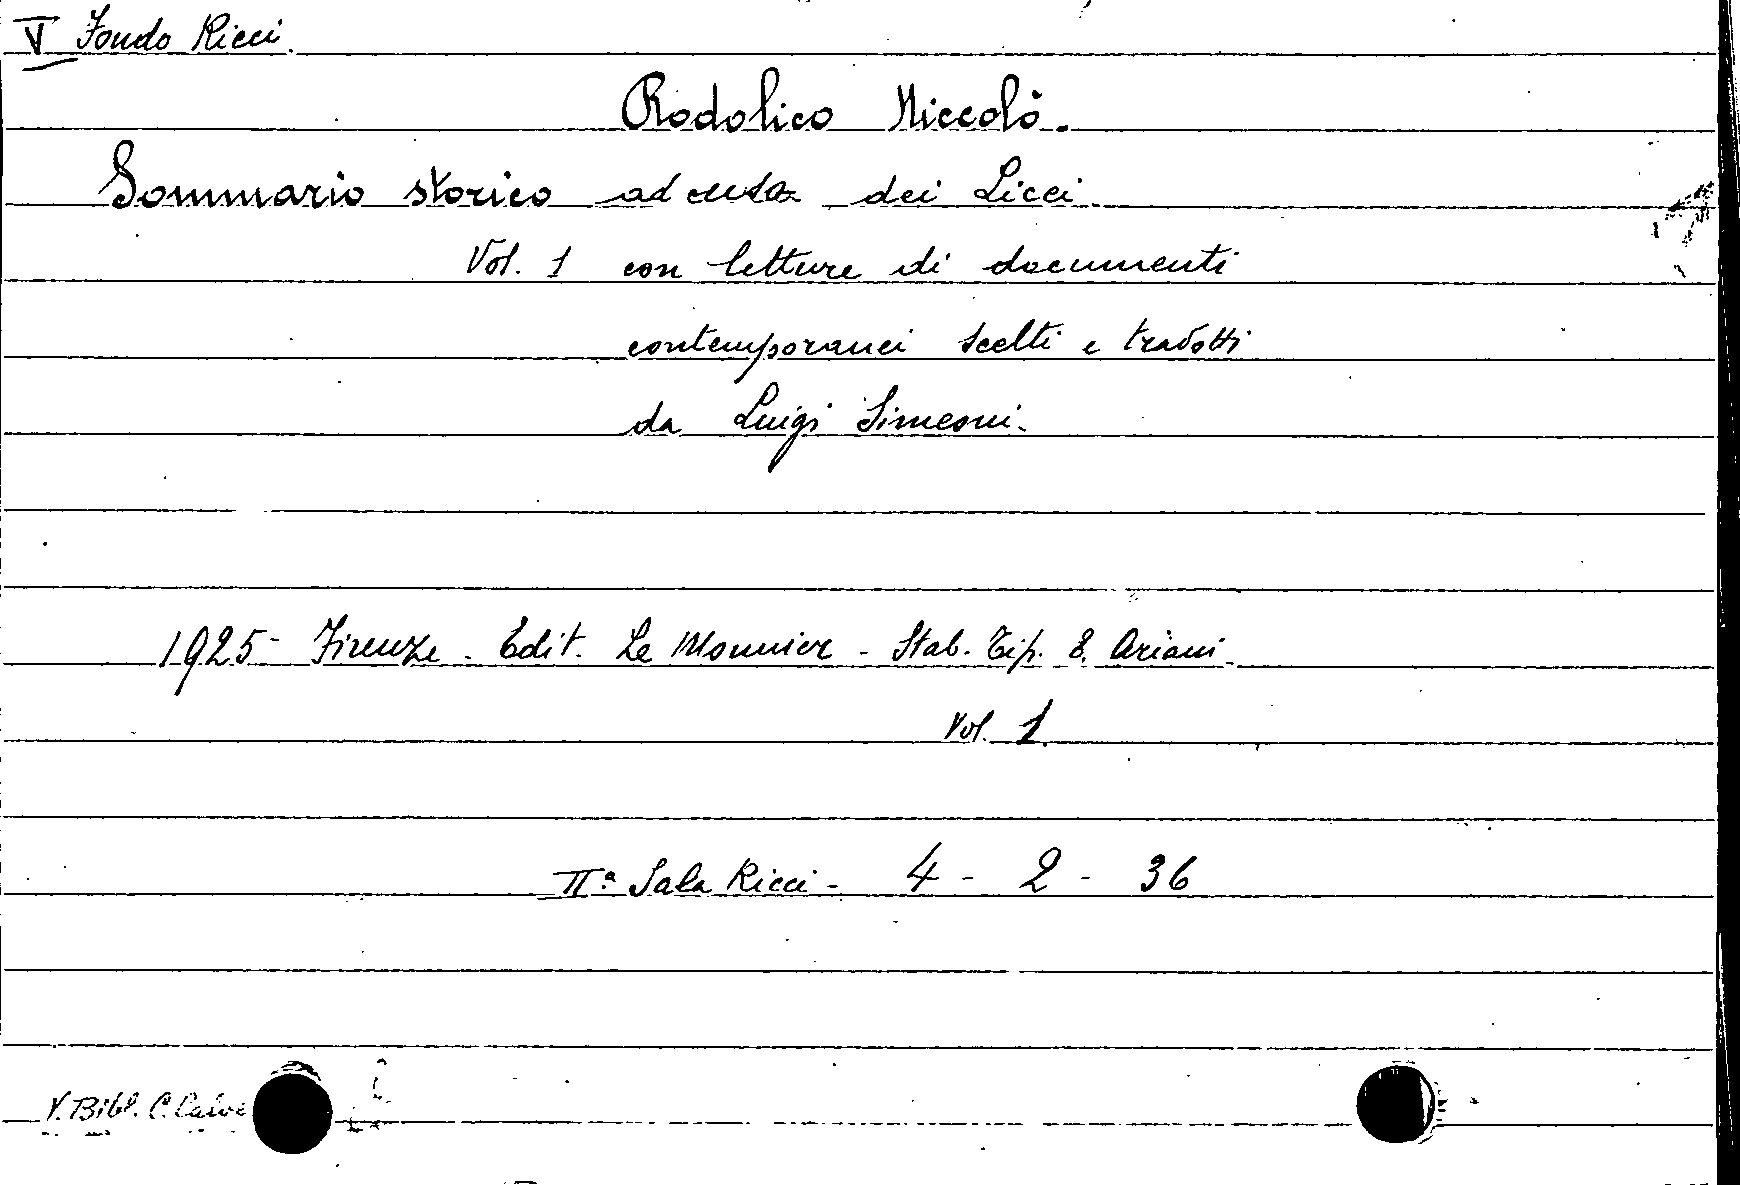 V Fondo Ricci.
Rodolico Niccolò.
Sommario storico ad uso dei Licei
Vol. 1 con letture di documenti
contemporanei scelti e tradotti
da Luigi Simeoni.
1925 - Firenze - Edit. Le Monnier - Stab. Tip. E. Ariani.
Vol. 1
IIª Sala Ricci - 4 - 2 - 36
V. Bibl. C.